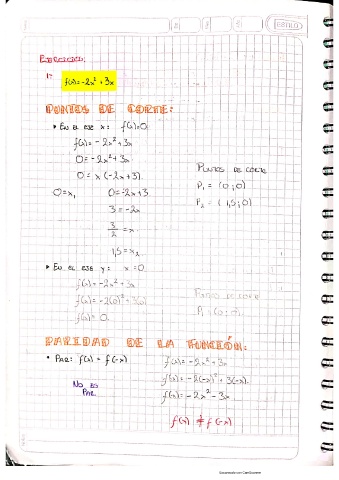 ESTILO
EJERCICIOS:
1- f(x) = -2x² + 3x
PUNTOS DE CORTE:
• EN EL EJE x: f(x)=0
f(x) = -2x² + 3x
0 = -2x² + 3x
0 = x (-2x + 3)
0 = x₁ 0 = -2x + 3
3 = -2x
3/2 = x
1,5 = x₂
PUNTOS DE CORTE
P₁ = (0 ; 0)
P₂ = (1,5 ; 0)
• EN EL EJE y: x = 0
f(x) = -2x² + 3x
f(x) = -2(0)² + 3(0)
f(x) = 0
PUNTO DE CORTE
P: (0 ; 0)
PARIDAD DE LA FUNCIÓN:
• PAR: f(x) = f(-x)
NO ES
PAR
f(x) = -2x² + 3x
f(x) = -2(-x)² + 3(-x)
f(x) = -2x² - 3x
f(x) ≠ f(-x)
Escaneado con CamScanner